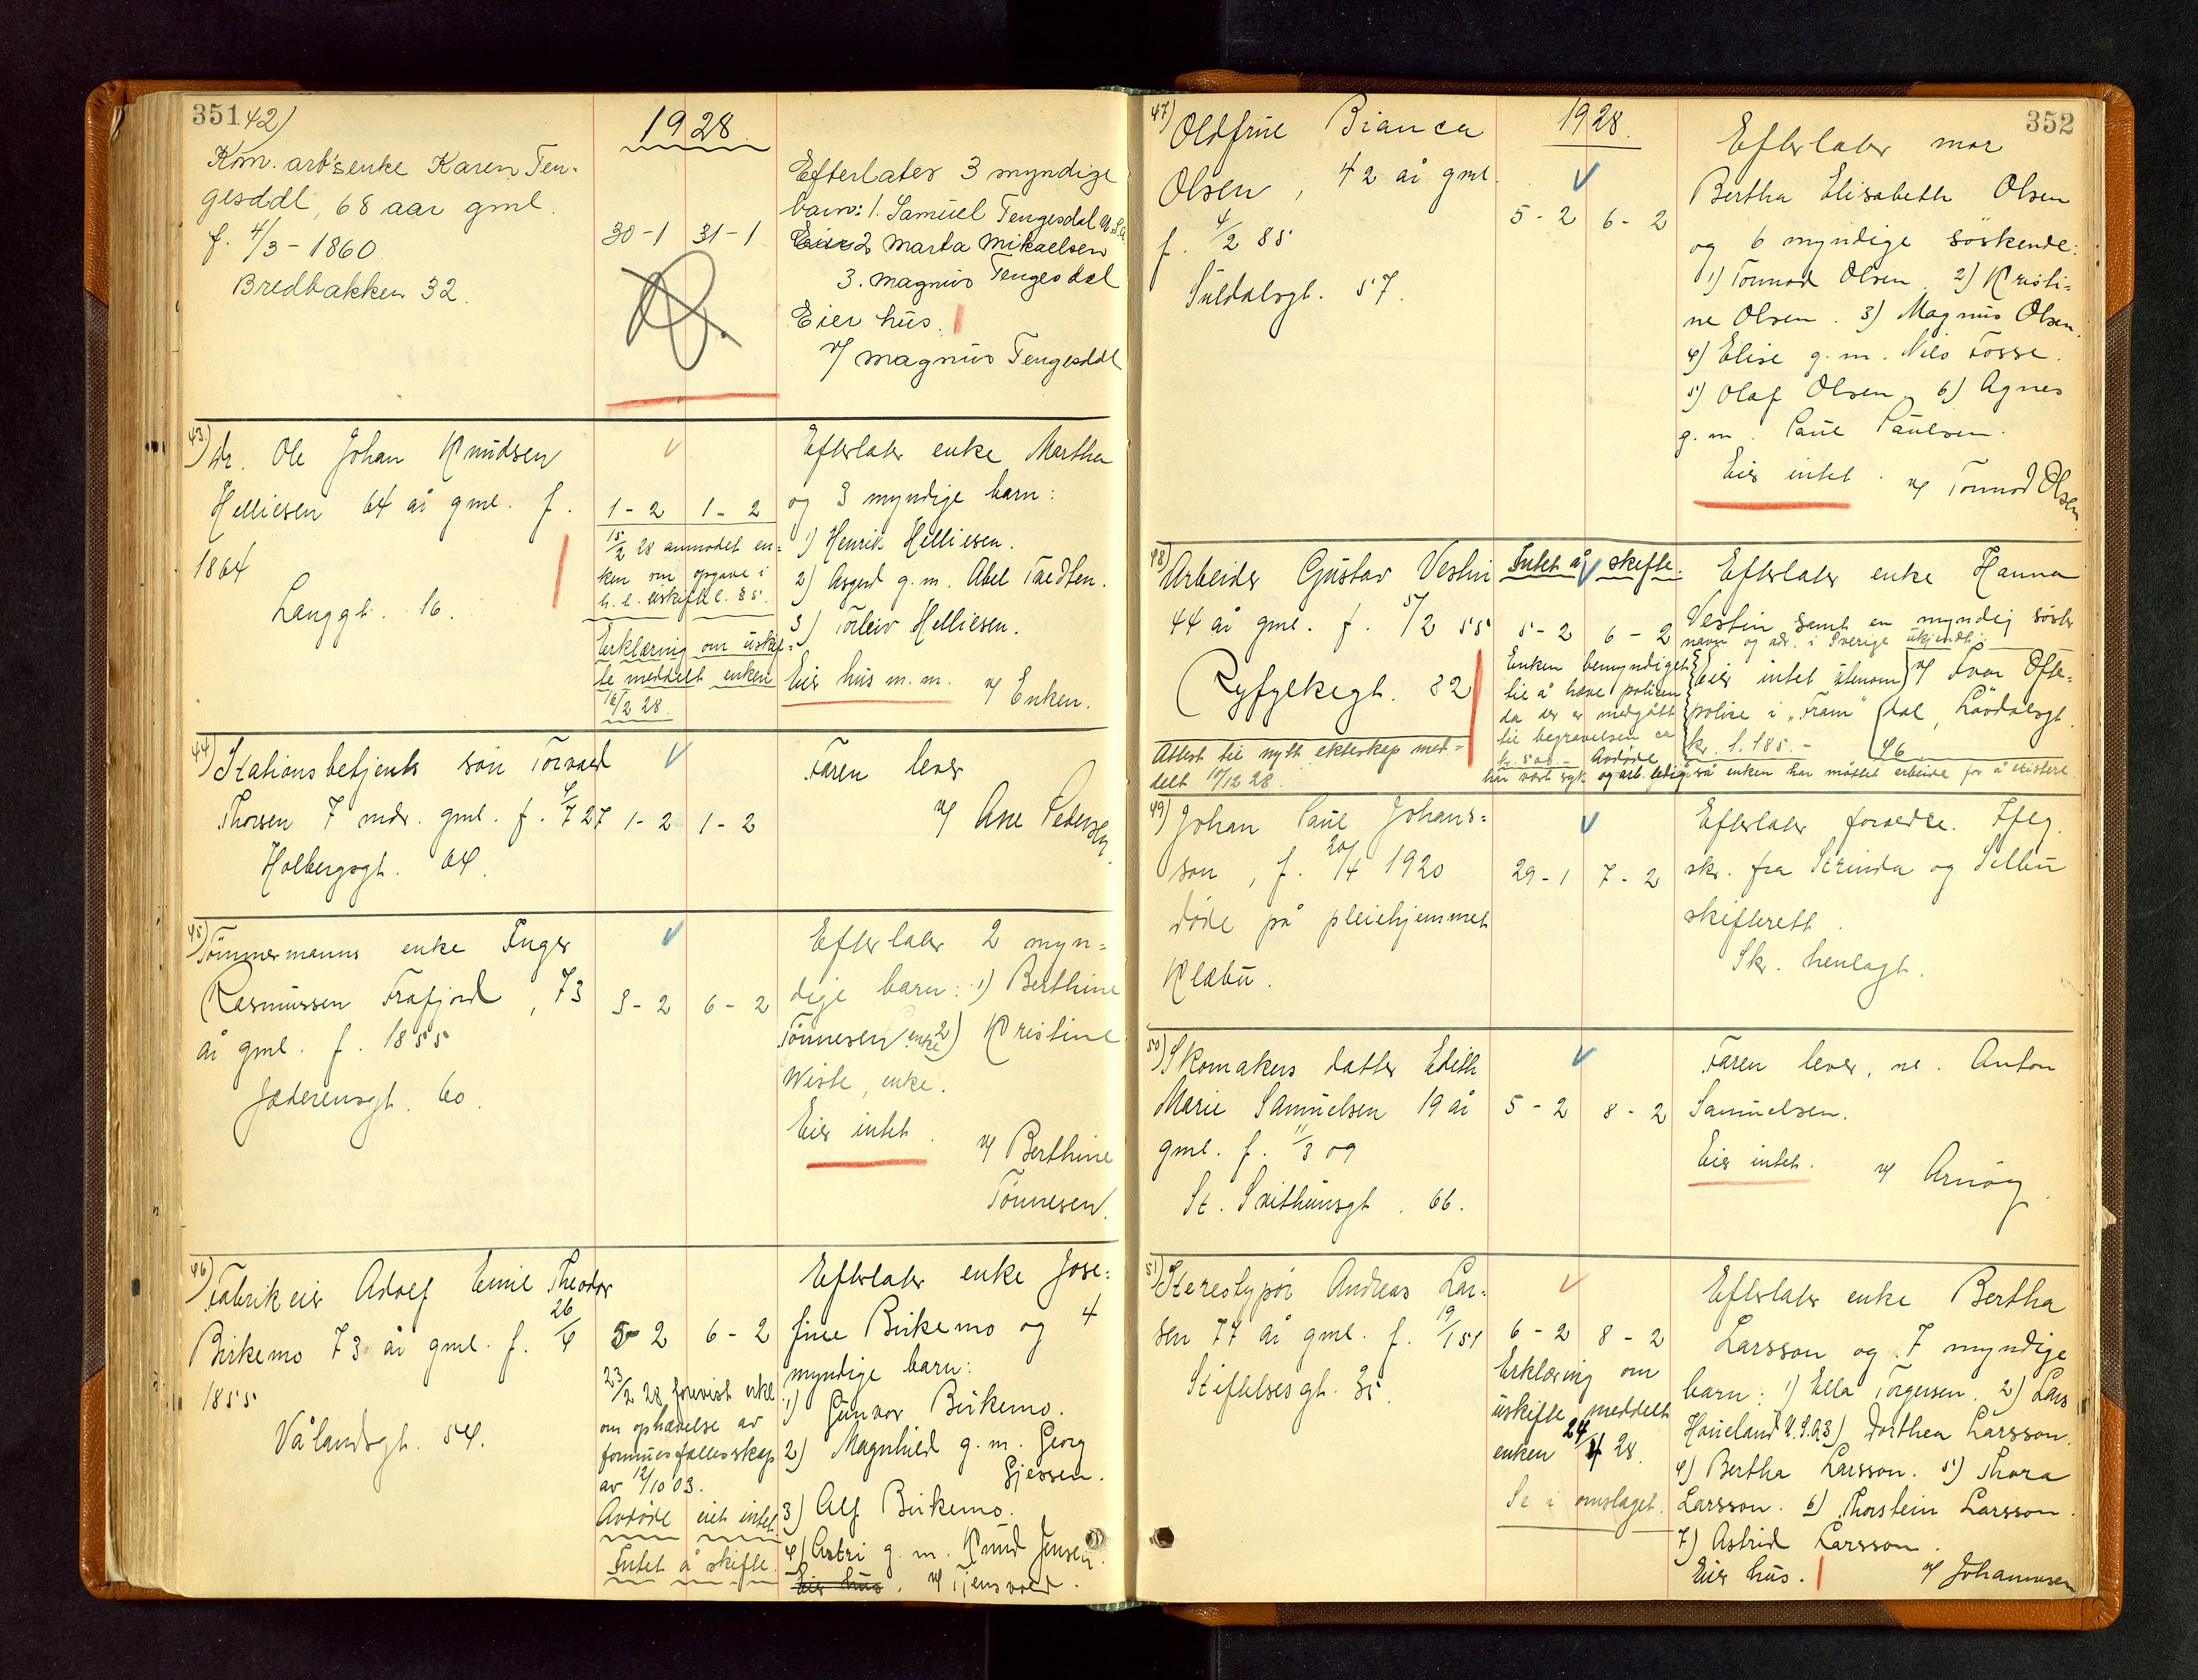 351
42)
1928.
Kom. arb's enke Karen Ten-
gesdal, 68 aar gml.
f. 4/3 - 1860.
Bredbakken 32.
30-1 31-1
Efterlater 3 myndige
barn: 1. Samuel Tengesdal U.S.A.
2 Marta Mikaelsen
3. Magnus Tengesdal
Eier hus.
v/ Magnus Tengesdal
43)
Ole Johan Knudsen
Helliesen 64 år gml. f.
1864
Langgt. 16.
1-2 1-2
15/2 28 anmodet en-
ken om opgave i
h. t. uskiftel. § 5.
Erklæring om uskif-
te meddelt enken
16/2 28.
Efterlater enke Martha
og 3 myndige barn:
1) Henrik Helliesen.
2) Asgerd g. m. Abel Tædten.
3) Torleiv Helliesen.
Eier hus m. m. v/ Enken.
44)
Stationsbetjents søn Torvald
Thorsen 7 mdr. gml. f. 4/7 27
Holbergsgt. 64.
1-2 1-2
Faren lever
v/ Ane Pedersen.
45)
Tømmermanns enke Inger
Rasmussen Frafjord, 73
år gml. f. 1855
Jæderensgt. 60.
3-2 6-2
Efterlater 2 myn-
dige barn: 1) Berthine
Tønnesen enke 2) Kristine
Wiste, enke.
Eier intet.
v/ Berthine
Tønnesen.
46)
Fabrikeier Adolf Emil Theodor
Birkemo 73 år gml. f. 26/4
1855
Vålandsgt. 54.
5-2 6-2
23/2 28 forevist erkl.
om ophævelse av
formuesfællesskap
av 12/10 03.
Avdøde eiet intet.
Intet å skifte.
Efterlater enke Jose-
fine Birkemo og 4
myndige barn:
1) Gunvor Birkemo.
2) Magnhild g. m. Georg
Gjessen.
3) Alf Birkemo.
4) Astri g. m. Knud Jensen.
Eier hus. v/ Tjensvold.
352
47)
1928.
Oldfrue Bianca
Olsen, 42 år gml.
f. 4/2 85
Suldalsgt. 57.
5-2 6-2
Efterlater mor
Bertha Elisabeth Olsen
og 6 myndige søskende:
1) Tormod Olsen. 2) Kristi-
ne Olsen. 3) Magnus Olsen.
4) Elise g. m. Nils Fosse.
5) Olaf Olsen. 6) Agnes
g. m. Paul Paulsen.
Eier intet. v/ Tormod Olsen.
48)
Arbeider Gustav Vestin
44 år gml. f. 5/2 55
Ryfylkegt. 82
Attest til nytt ekteskap med-
delt 17/12 28.
Intet å skifte.
5-2 6-2
Enken bemyndiget
til å hæve polisen
da der er medgått
til begravelsen ca
kr. 500.- Avdøde
har vært syk og arb. ledig så enken har måttet arbeide for å eksistere.
Efterlater enke Hanna
Vestin samt en myndig søster
navn og adr. i Sverige ukjendt.
Eier intet utenom
polise i "Fram"
kr. 1.185.-
v/ Ivar Ofte-
dal, Løvdalsgt.
46
49)
Johan Paul Johans-
son, f. 20/4 1920
døde på pleiehjemmet
Klæbu.
29-1 7-2
Efterlater forældre. Ifølg.
skr. fra Strinda og Selbu
skifterett.
Skr. henlagt.
50)
Skomakers datter Edith
Marie Samuelsen 19 år
gml. f. 11/3 09
St. Svithunsgt. 66.
5-2 8-2
Faren lever, Anton
Samuelsen.
Eier intet. v/ Arnøy.
51)
Stereotypør Andreas Lar-
sen 77 år gml. f. 19/1 51
Stiftelsesgt. 35.
6-2 8-2
Erklæring om
uskifte meddelt
enken 24/4 28.
Se i omslaget.
Efterlater enke Bertha
Larsson og 7 myndige
barn: 1) Ella Torgersen. 2) Lars
Haueland U.S.A. 3) Dorthea Larsson.
4) Bertha Larsson. 5) Thora
Larsson. 6) Thorstein Larsson.
7) Astrid Larsson.
Eier hus. v/ Johannesen